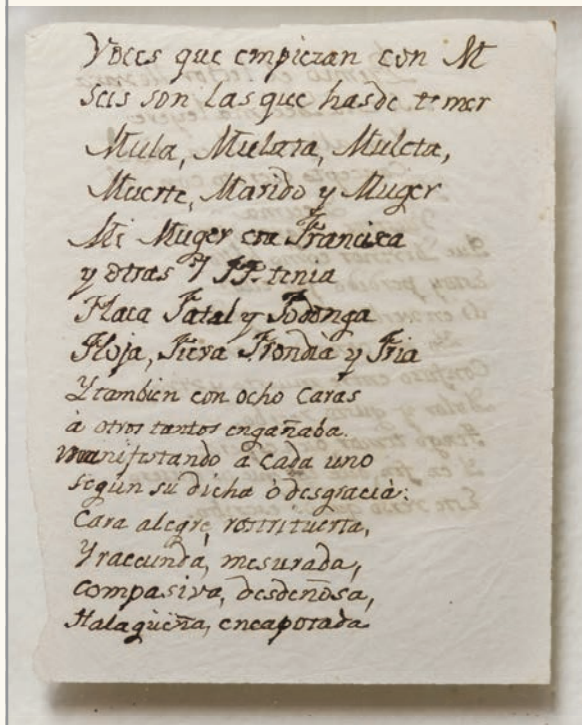 Voces que empiezan con M
seis son las que has de temer
Mula, Mulata, Muleta,
Muerte, Marido y Muger
Mi Muger era Francisca
y otras 7 FF. tenia
Flaca Fatal y Fodonga
Floja, Fiera Frondia y Fria
Y tambien con ocho caras
à otros tantos engañaba.
manifestando à cada uno
segun su dicha ò desgracia:
Cara alegre, rostrituerta,
Yracunda, mesurada,
compasiva, desdeñosa,
Halagüeña, encapotada